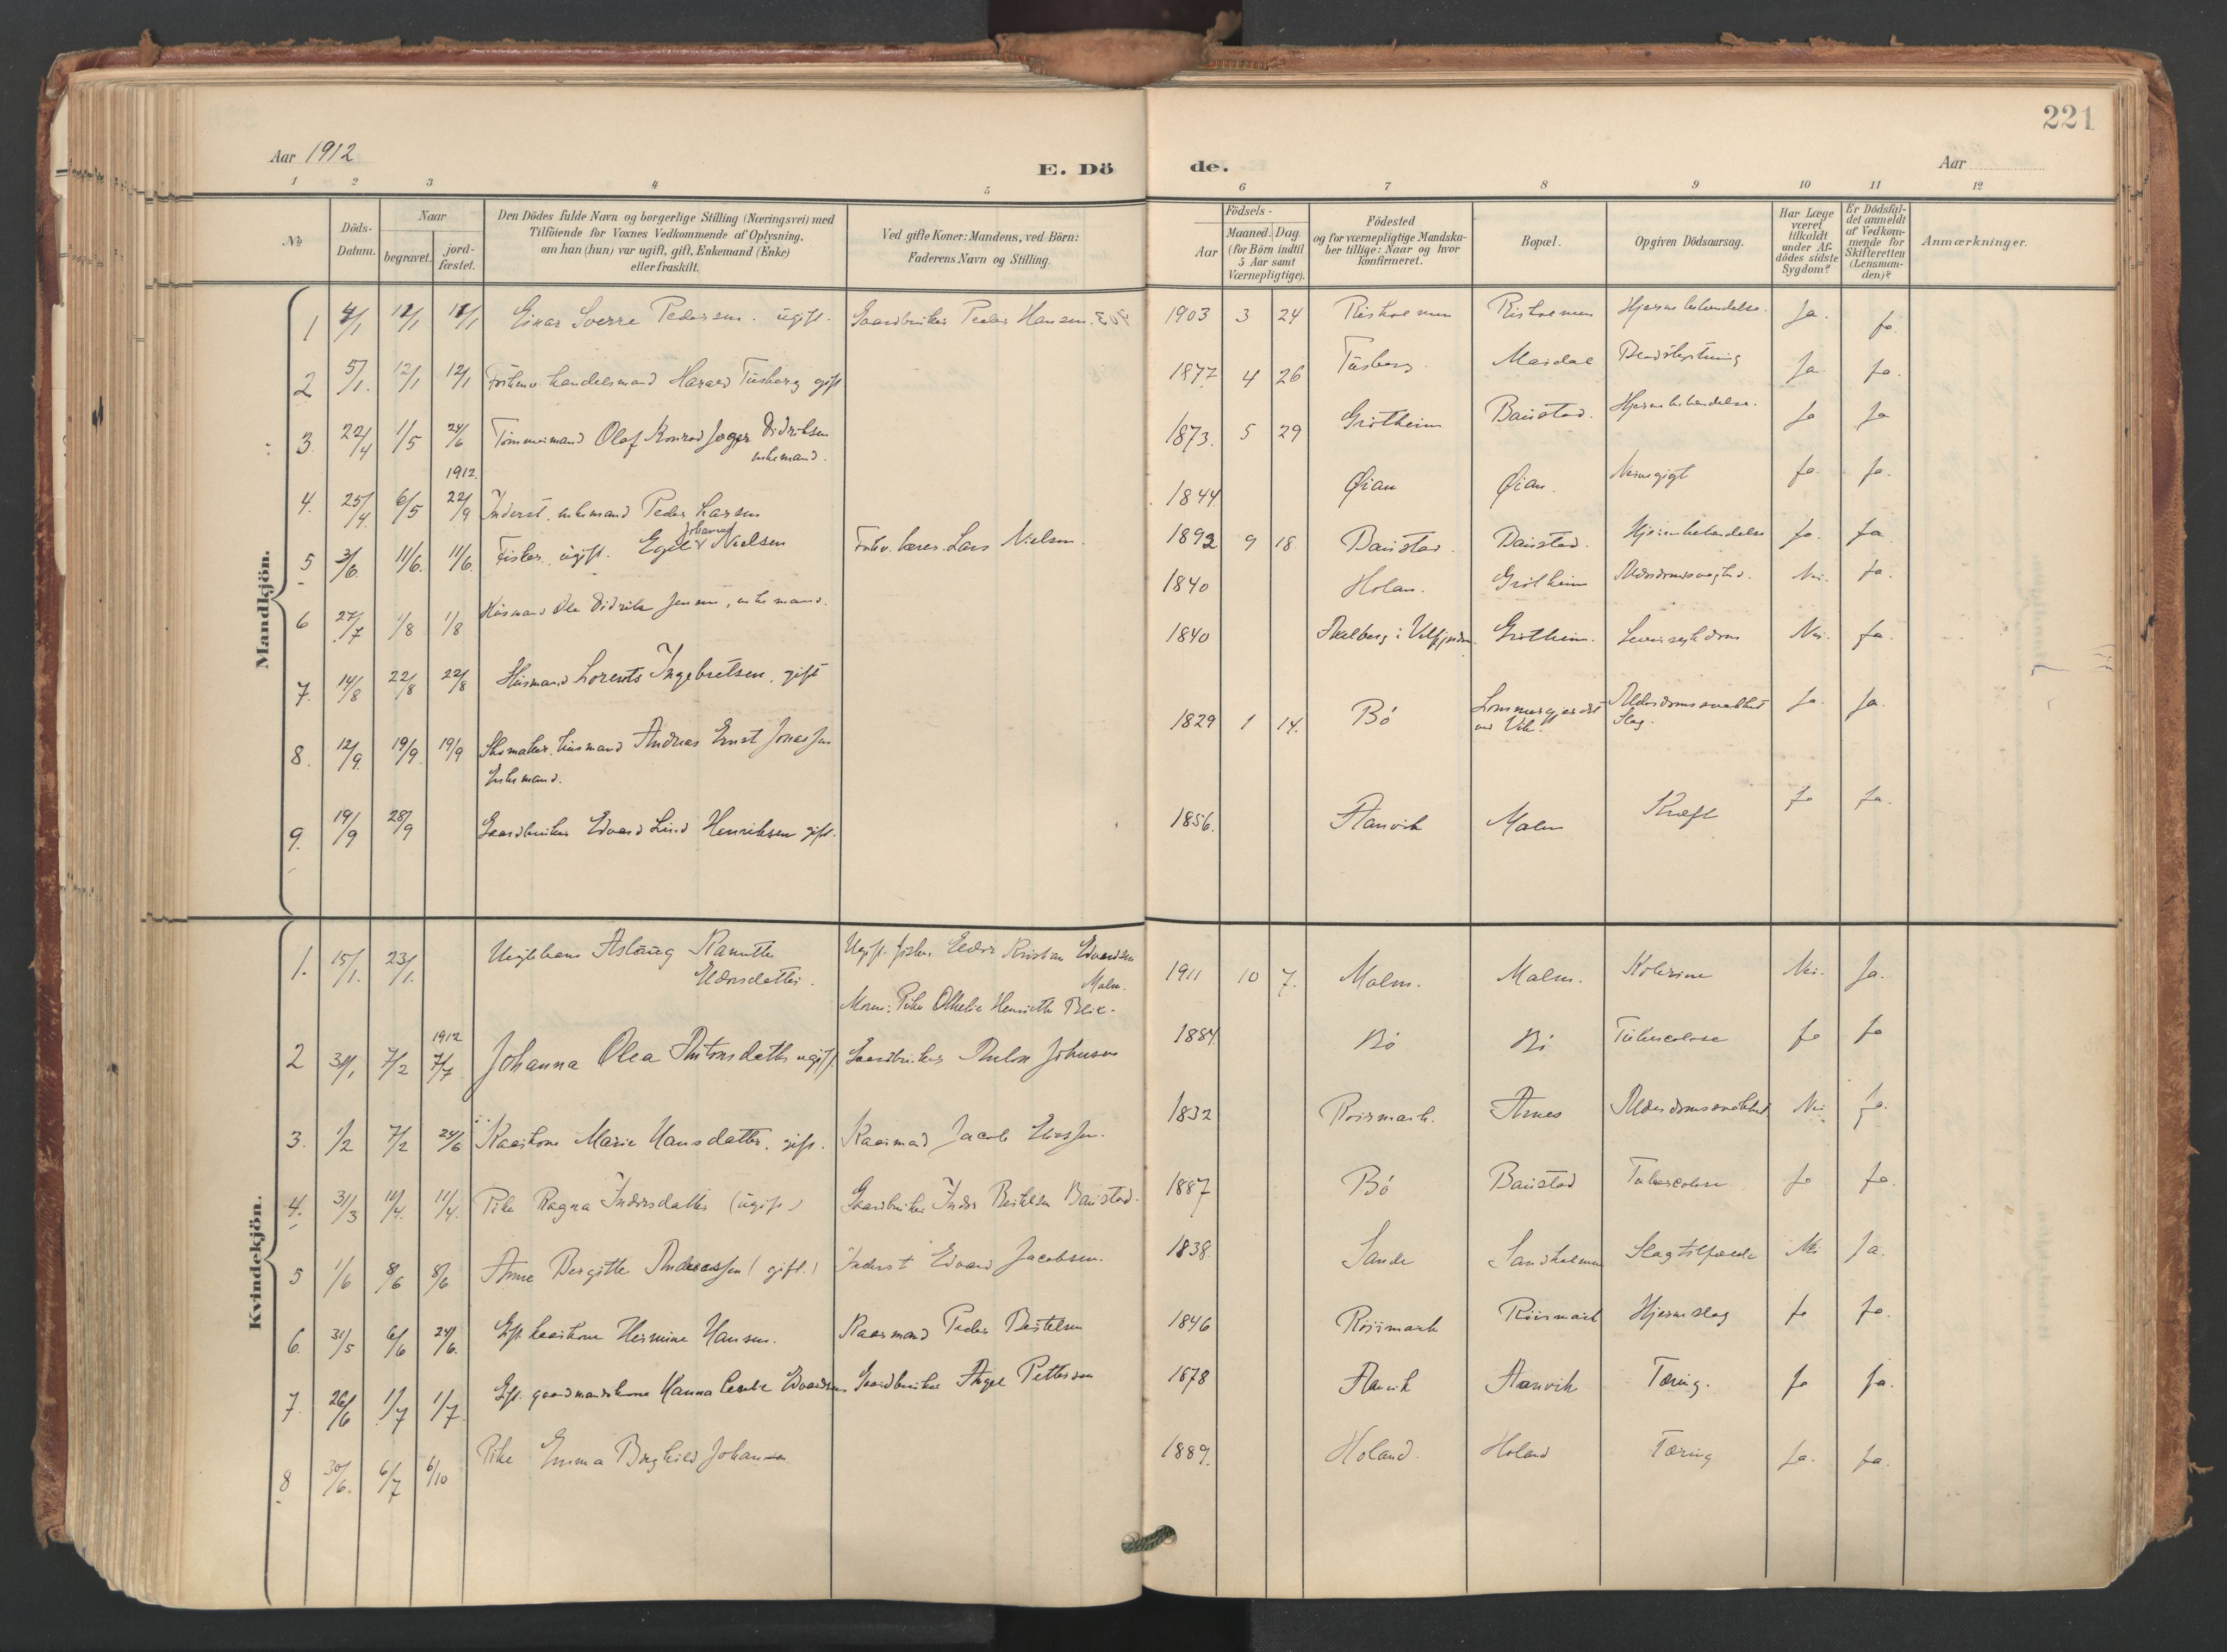 221
Aar 1912
E. Dö
de.
Aar
1 2 3 4 5 6 7 8 9 10 11 12
№
Döds-Datum.
Naar
begravet.
jord-fæstet.
Den Dödes fulde Navn og borgerlige Stilling (Næringsvei) med
Tilföiende for Voxnes Vedkommende af Oplysning,
om han (hun) var ugift, gift, Enkemand (Enke)
eller fraskilt.
Ved gifte Koner: Mandens, ved Börn:
Faderens Navn og Stilling.
Födsels-
Aar
Maaned. Dag.
(for Börn indtil
5 Aar samt
Værnepligtige).
Födested
og for værnepligtige Mandska-
ber tillige: Naar og hvor
konfirmeret.
Bopæl.
Opgiven Dödsaarsag.
Har Læge
været
tilkaldt
under Af-
dödes sidste
Sygdom?
Er Dödsfal-
det anmeldt
af Vedkom-
mende for
Skifteretten
(Lensman-
den)?
Anmærkninger.
Mandkjön.
1 4/1 12/1 12/1 Einar Sverre Pedersen. ugift. Gaardbruker Peder Hansen. 1903 3 24 Risholmen Risholmen Hjernebetændelse. Ja. Ja.
2 5/1. 12/1 12/1 handelsmand Harald Tilsberg gift 1877 4 26 Ja Ja.
3. 22/4 1/5 24/6 Tømmermand Olaf Konrad Jæger Didriksen
enkemand. 1873. 5 29 Grøtheim Baustad. Hjernebetændelse. Ja Ja
1912.
4. 25/4. 6/5 22/9 Inderst, enkemand Peder Larsen 1844 Øian Øian. Ja. Ja.
5 3/6. 11/6. 11/6. Fisker, ugift. Egil Johannes Nielsen Forhv. lærer Lars Nielsen. 1892 9 18. Baustad. Baustad. Hjernebetændelse Ja. Ja.
6 27/7 1/8 1/8 Husmand Ole Didrik Jensen, enkemand. 1840 Holan. Grøtheim Alderdomssvaghed. Nei. Ja.
7. 14/8 22/8 22/8 Husmand Lorents Ingebretsen. gift 1840 i Velfjorden. Grøtheim. Nei. Ja.
8. 12/9. 19/9. 19/9 Skomaker, husmand Andreas Ernst Jonassen
Enkemand. 1829 1 14. Bø ved Vik. Alderdomssvakhet
Slag. Ja. Ja.
9. 19/9 28/9 Gaardbruker Edvard Lind Henriksen gift. 1856. Aanvik Malm Kræft Ja Ja.
Kvindekjön.
1. 15/1. 23/1. Uegtebarn Aslaug Ranette
Eldorsdatter. Ugift fisker Eldor Kristian Edvardsen
Malm.
Moren: Pike Othelie Henriette Blix. 1911 10 7. Malm. Malm. Kolerine Nei. Ja.
1912
2 31/1 7/2 7/7 Johanna Olea Antonsdatter ugift. Gaardbruker Anton Johnsen 1884. Bø Bø Tuberculose Ja Ja
3. 1/2 7/2 24/6 Kaarkone Marie Hansdatter. gift. Kaarmand Jacob 1832 Røirmark. Arnes Alderdomssvakhet. Nei Ja.
4. 31/3 11/4. 11/4. Pike Ragna Indersdatter (ugift) Gaardbruker Inder Bertelsen Baustad. 1887 Bø Baustad Tuberculose Ja Ja.
5 1/6 8/6 8/6 Anne Bergitte Andreassen (gift.) Inderst Edvard Jacobsen. 1838. Sande Sandholmen Slagtilfælde Nei Ja.
6. 31/5 6/6 24/6. Gift kaarkone Hermine Hansen. Kaarmand Peder Bertelsen 1846 Røirmark Røirmark Hjerneslag Ja Ja.
7. 26/6 1/7 1/7. Gift gaardmandskone Hanna Edvardsen Gaardbruker Angel Pettersen 1878 Aanvik Aanvik Tæring. Ja Ja.
8 30/6. 6/7 6/10 Pike Emma Borghild Johansen 1889. Holand. Holand Tæring Ja. Ja.